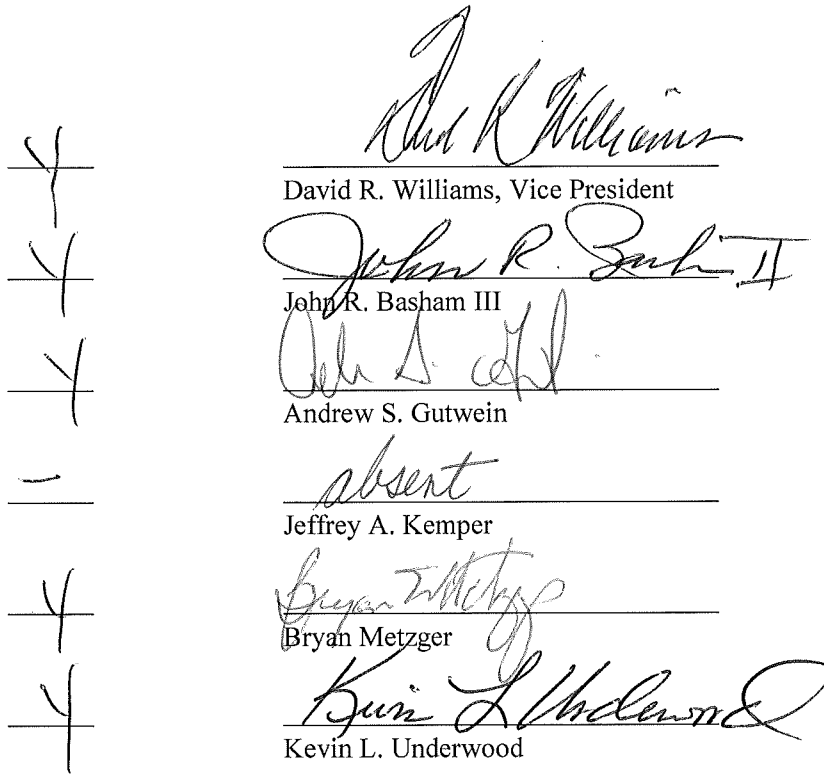 Y David R Williams
David R. Williams, Vice President
Y John R. Basham II
John R. Basham III
Y
Andrew S. Gutwein
– absent
Jeffrey A. Kemper
Y Bryan Metzger
Bryan Metzger
Y Kevin L Underwood
Kevin L. Underwood